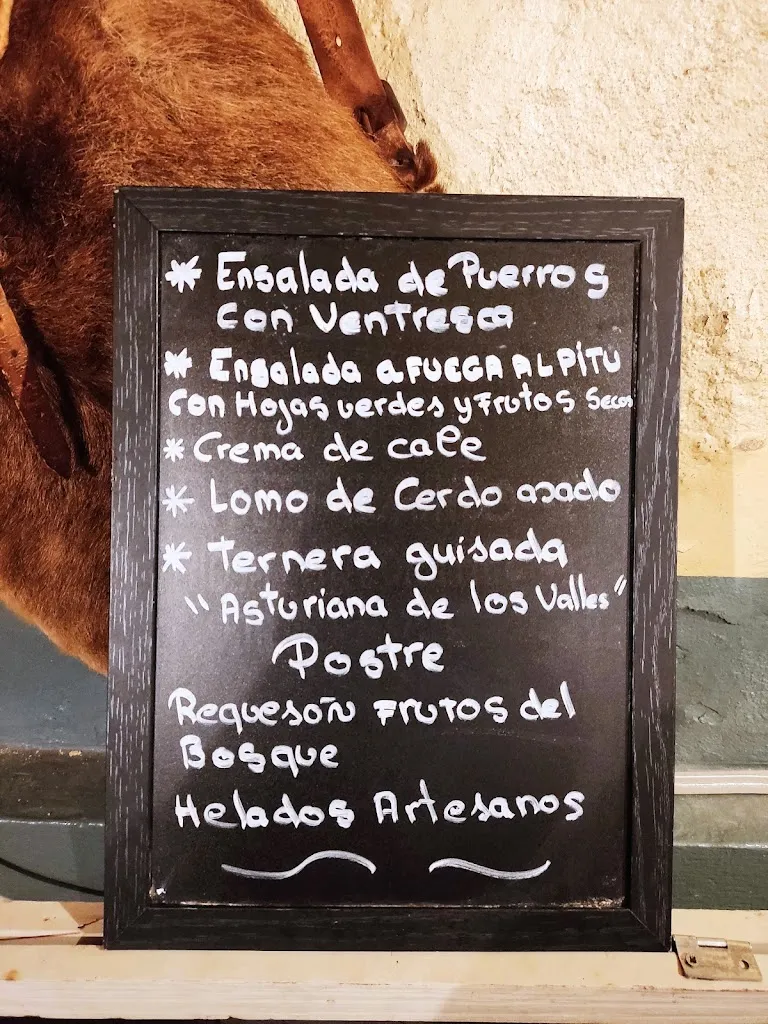 * Ensalada de Puerros
con Ventresca
* Ensalada aFUEGA AL PITU
con Hojas verdes y Frutos Secos
* Crema de cale
* Lomo de Cerdo asado
* Ternera guisada
"Asturiana de los Valles"
Postre
Requesoñ Frutos del
Bosque
Helados Artesanos